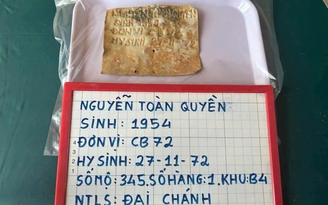 SINH 1954
ĐƠN VỊ CB72
HY SINH
NGUYỄN TOÀN QUYỀN
SINH: 1954
ĐƠN VỊ: CB 72
HY SINH: 27-11-72
SỐ MỘ: 345. SỐ HÀNG: 1. KHU: B4
NTLS: ĐẠI CHÁNH